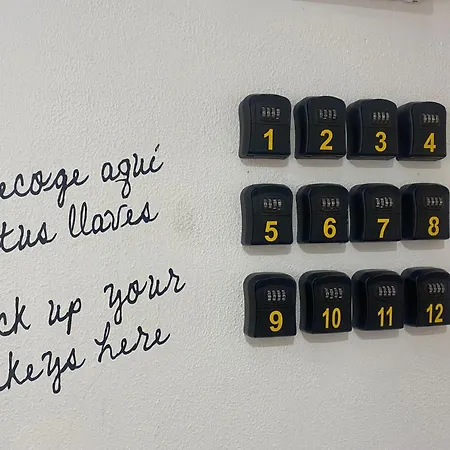 ecoge aquí
tus llaves
ck up your
keys here
1 2 3 4
5 6 7 8
9 10 11 12